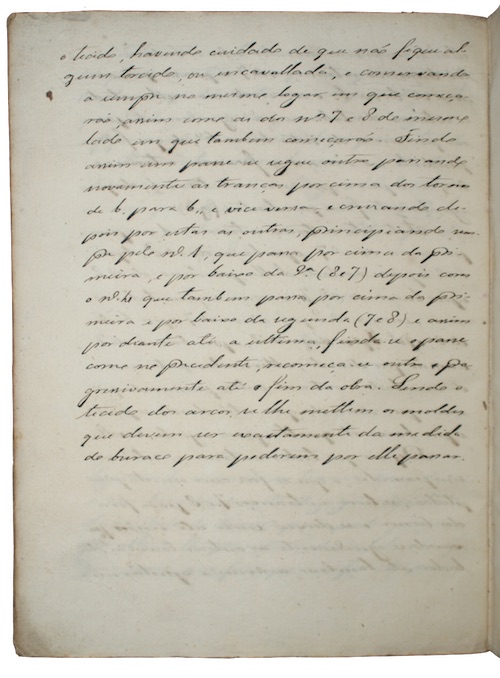 o tecido, havendo cuidado de que não fique al-
gum torcido, ou encavallado, e conservando
a sempre no mesmo logar em que começa-
rão, assim como as dos nos 7 e 8 do
lado em que tambem começarão. Findo
assim um passe se segue outro passando
novamente as tranças por cima dos tornos
de b, para b,, e vice versa e cruzando de-
pois por estas as outras, principiando sem-
pre pelo nº 1, que passa por cima da pri-
meira, e por baixo da 2ª (8 e 7) depois com
o nº 4 que tambem passa por cima da pri-
meira e por baixo da segunda (7 e 8) e assim
por diante até a ultima, finda-se o passe
como no precedente, recomeça-se outro e pro-
gressivamente até o fim da obra. Sendo o
tecido dos arcos, se lhe mettem os moldes
que devem ser exactamente da medida
do buraco para poderem por elle passar.